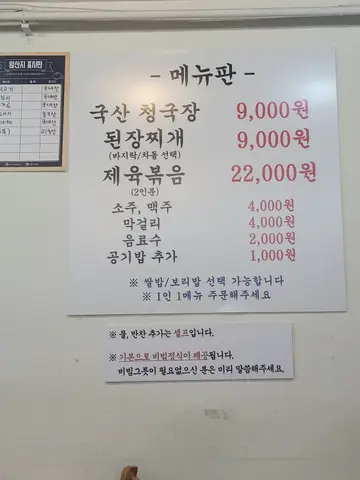 원산지 표시판
- 메뉴판 -
국산 청국장 9,000원
된장찌개 9,000원
(바지락/차돌 선택)
제육볶음 22,000원
(2인분)
소주, 맥주 4,000원
막걸리 4,000원
음료수 2,000원
공기밥 추가 1,000원
※ 쌀밥/보리밥 선택 가능합니다
※ 1인 1메뉴 주문해주세요
※ 물, 반찬 추가는 셀프입니다.
※ 기본으로 비빔정식이 제공됩니다.
비빔그릇이 필요없으신 분은 미리 말씀해주세요.